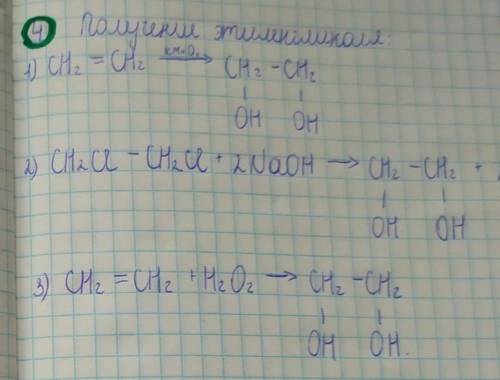 4 Получение этиленгликоля.
1) CH₂ = CH₂ —KMnO₄→ CH₂ - CH₂
OH OH
2) CH₂Cl - CH₂Cl + 2NaOH → CH₂ - CH₂ +
OH OH
3) CH₂ = CH₂ + H₂O₂ → CH₂ - CH₂
OH OH.